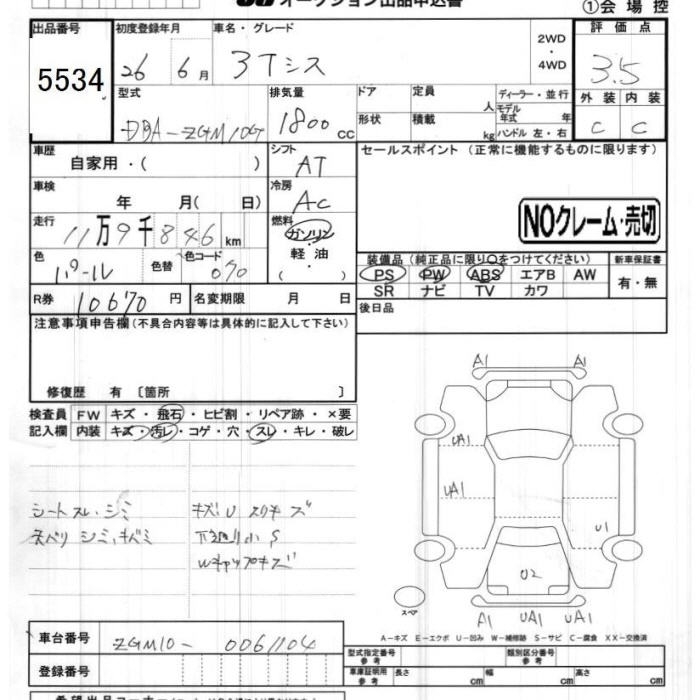 オークション出品申込書
①会場控
出品番号 初度登録年月 車名・グレード 2WD・4WD 評価点
5534 26 6月 3Tシス 3.5
型式 排気量 ドア 定員 人 ディーラー・並行 外装 内装
DBA-ZGM10G 1800cc 形状 積載 kg モデル年式 年 ハンドル 左・右 C C
車歴 自家用・( ) シフト AT セールスポイント (正常に機能するものに限ります)
車検 年 月( 日) 冷房 AC
NOクレーム・売切
走行 11万9千846km 燃料 ガソリン・軽油・( )
色 パール 色替 色コード 070
装備品 (純正品に限り○をつけてください) 新車保証書
PS PW ABS エアB AW 有・無
SR ナビ TV カワ
R券 10670円 名変期限 月 日 後日品
注意事項申告欄 (不具合内容等は具体的に記入して下さい)
修復歴 有 〔箇所 〕
検査員 FW キズ・飛石・ヒビ割・リペア跡・×要
記入欄 内装 キズ・汚レ・コゲ・穴・スレ・キレ・破レ
シートスレ・シミ キズU スリキズ
天ベリ シミ、キズミ 下廻り小S
Wキャップキズ
A1 A1
UA1
UA1
U1
U2
スペア
A1 UA1 UA1
A-キズ E-エクボ U-凹み W-補修跡 S-サビ C-腐食 XX-交換済
車台番号 ZGM10-0061104
登録番号
型式指定番号 参考 類別区分番号 参考
車庫証明用 参考 長さ cm 幅 cm 高さ cm